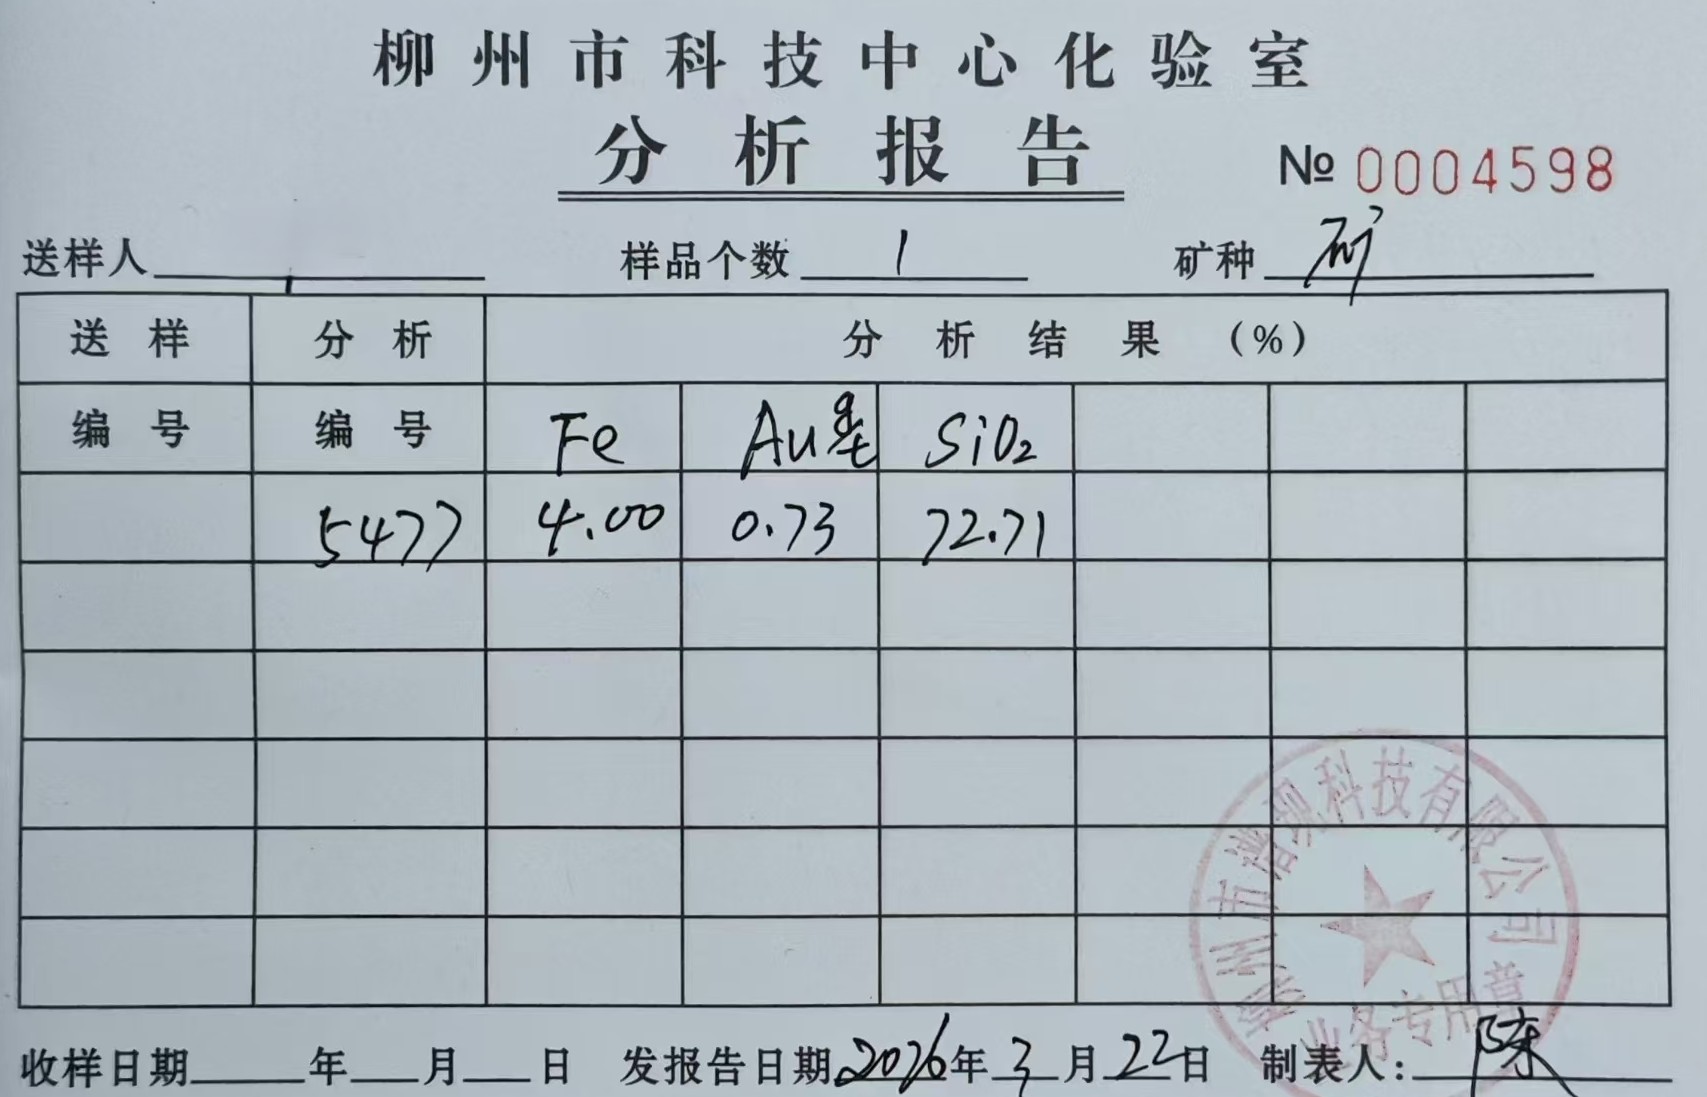 柳州市科技中心化验室
分析报告
№ 0004598
送样人 样品个数 1 矿种 矿
送样 分析 分析结果(%)
编号 编号 Fe Au g/t SiO₂
5477 4.00 0.73 72.71
柳州市谱观科技有限公司
业务专用章
收样日期 年 月 日 发报告日期 2026年3月22日 制表人: 陈